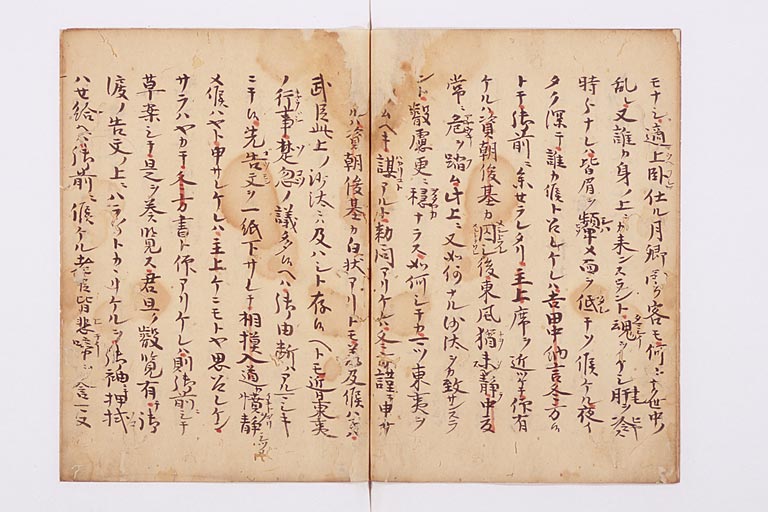 モナシ適上臥仕ル月卿雲客モ何ナル世中ノ
乱ニ又誰カ身ノ上ニカ来ンスラント魂ヲケシ肝ヲ冷ス
時ナレハ皆眉ヲ顰メ面ヲ低テソ候ケル夜イ
タク深テ誰カ候ト召レケレハ吉田中納言冬方候
トテ御前ニ参セラレタリ主上席ヲ近ツケテ仰有
ケルハ資朝俊基カ囚レシ後東風猶未静中夏
常ニ危ヲ踏ム此上ニ又如何ナル沙汰ヲカ致サンスラ
ント叡慮更ニ穏ナラス如何シテカ一ツ東夷ヲ
ムヘキ謀アルト勅問アリケレハ冬方謹テ申サ
ルハ資朝俊基カ白状アリトモ 及候ハネハ
武臣此上ノ沙汰ニハ及ハシト存候ヘトモ近日東夷
ノ行事楚忽ノ議多候ヘハ御由断アルマシキ
ニテ候先告文ヲ一紙下サレテ相模入道カ憤静
メ候ハヤト申サレケレハ主上ケニモトヤ思召レケン
サラハヤカテ冬方書ト仰アリケレハ則御前ニテ
草案シテ是ヲ奏覧ス君且ク叡覧有テ御
涙ノ告文ノ上ニハラハラトカカリケルヲ御袖ニテ押拭
ハセ給ヘハ御前ニ候ケル老臣皆悲啼ヲ含